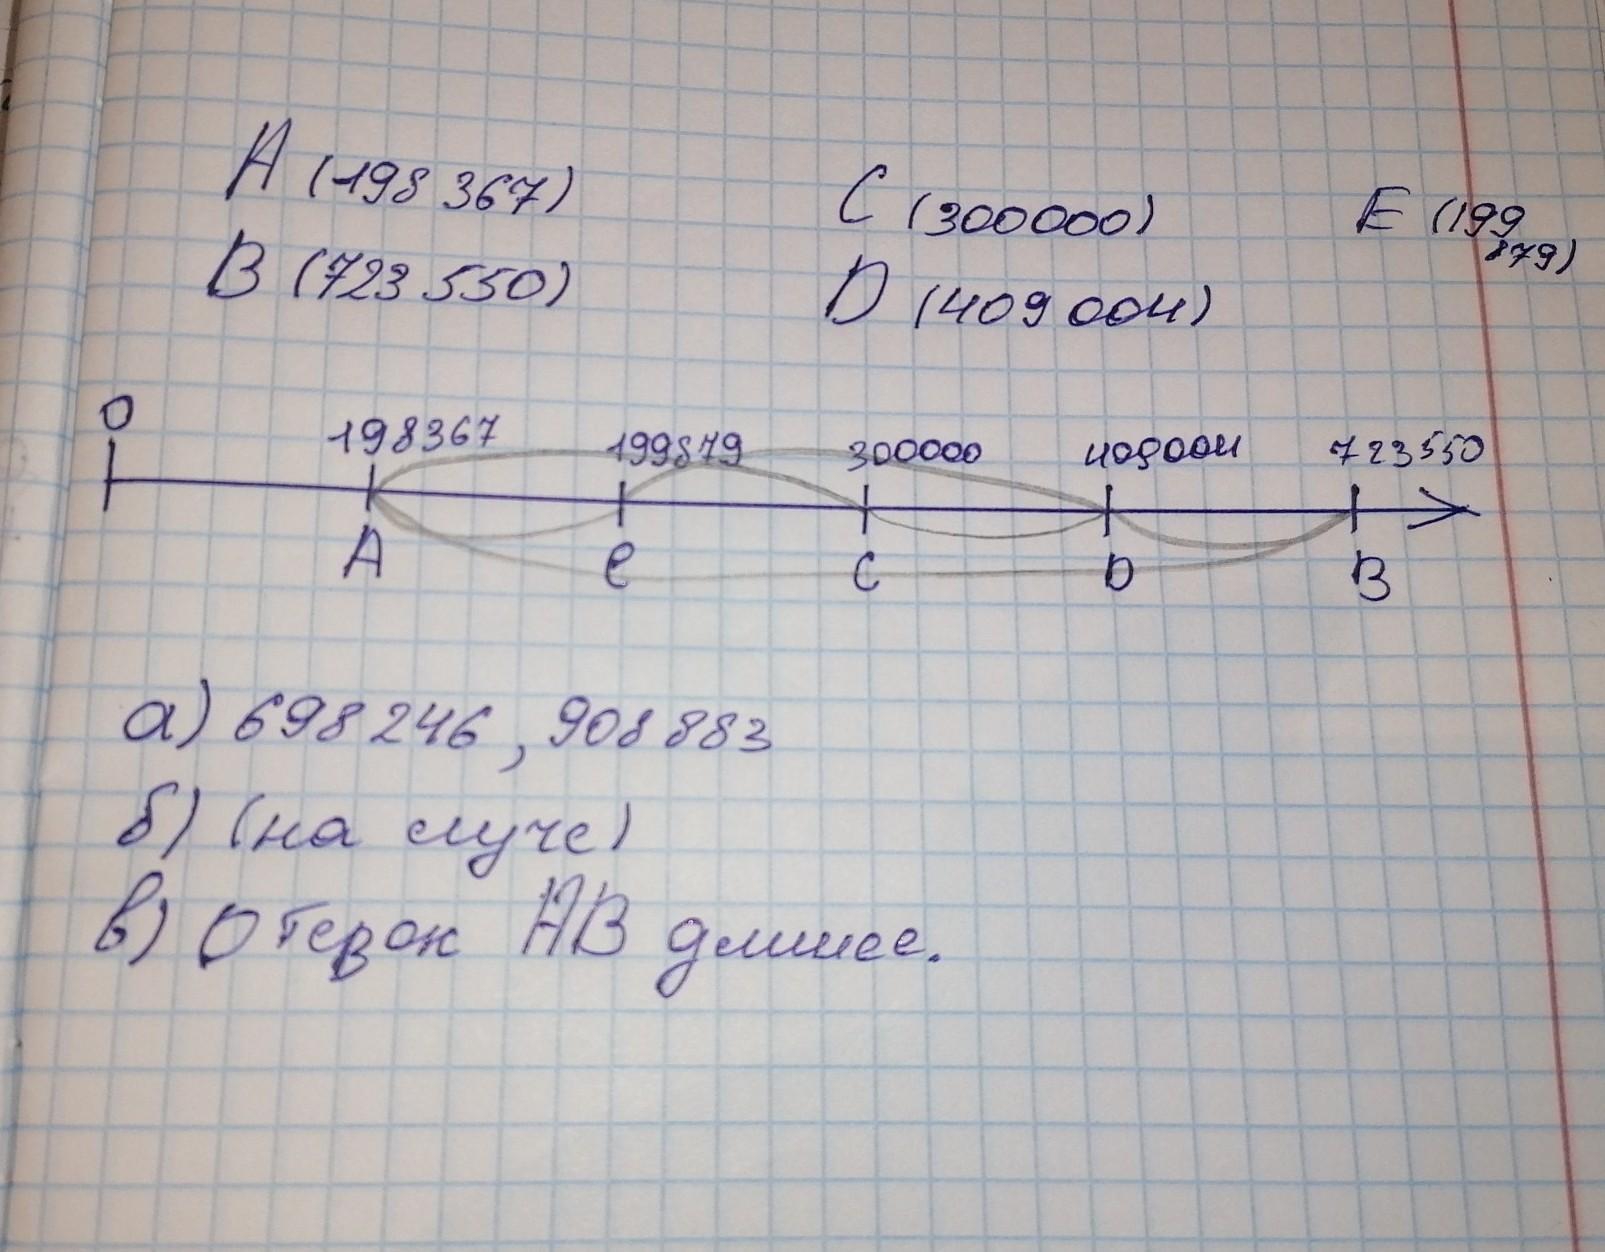 A (198 367)
C (300000)
E (199 879)
B (723 550)
D (409 004)
0 198367 199879 300000 409004 723550
A e C D B
а) 698 246, 908 883
б) (на луче)
в) Отерок АВ длинее.